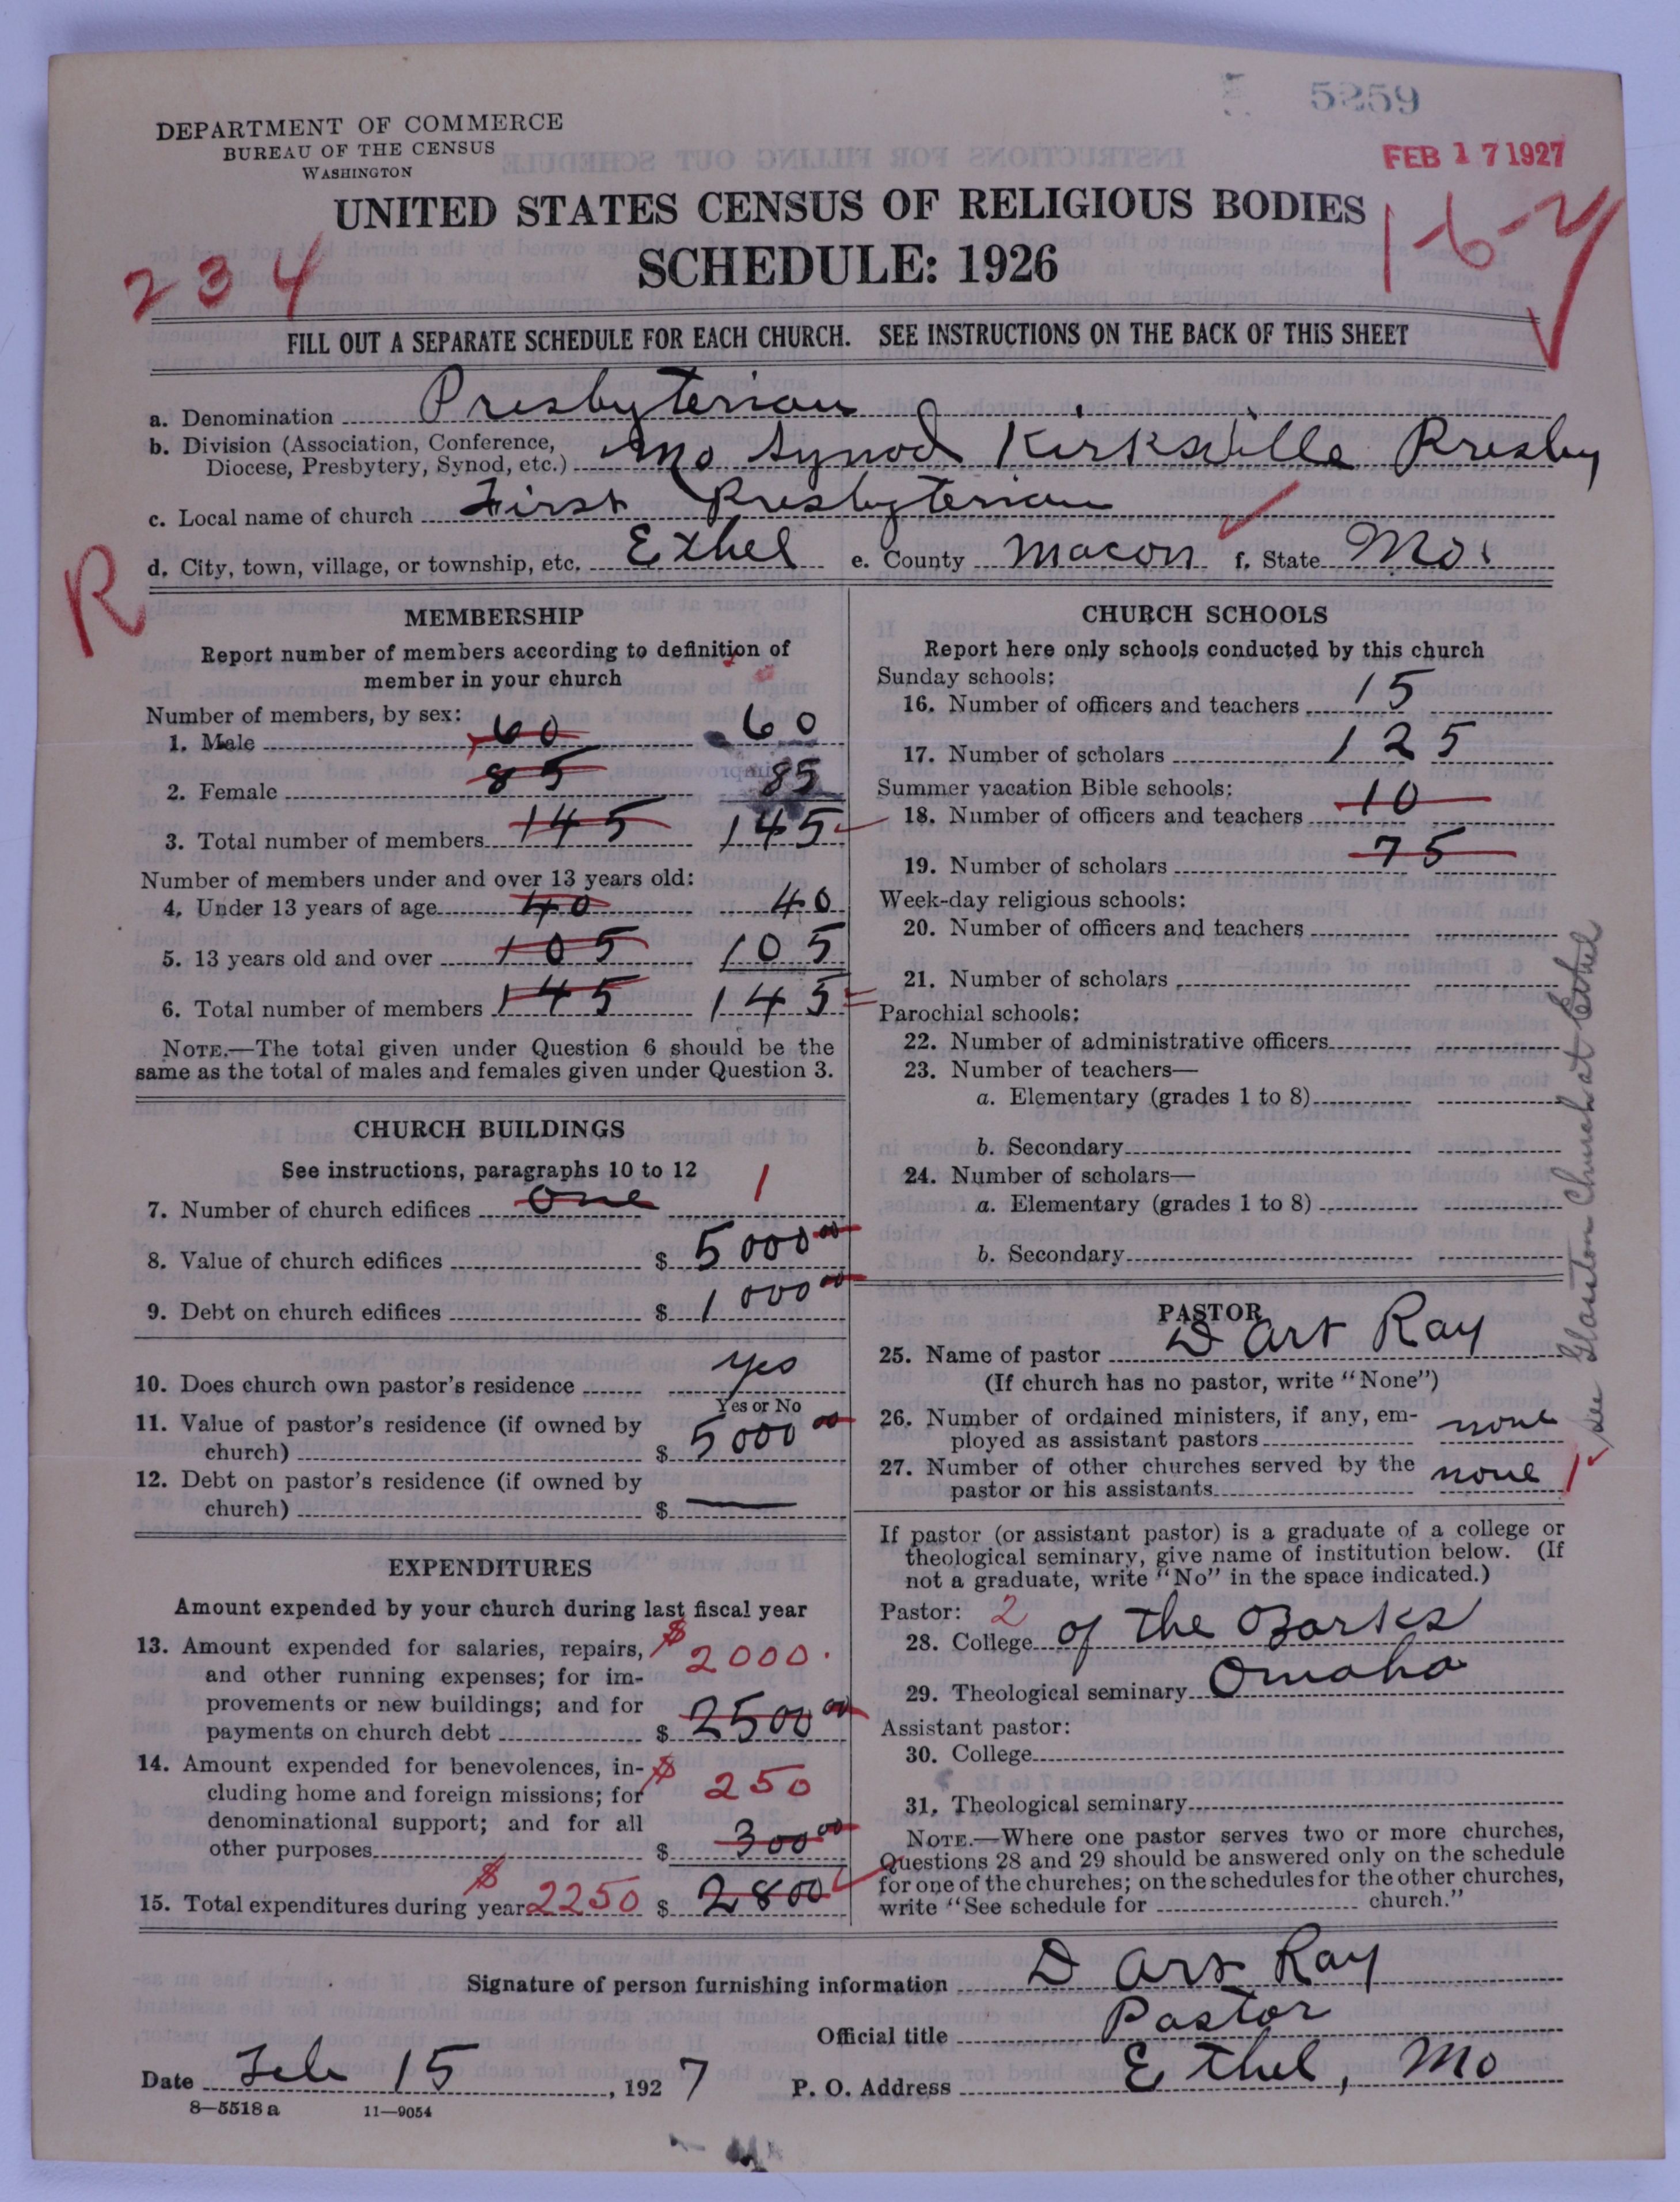 5259
FEB 17 1927
DEPARTMENT OF COMMERCE
BUREAU OF THE CENSUS
WASHINGTON
UNITED STATES CENSUS OF RELIGIOUS BODIES
SCHEDULE: 1926
234
1-6-
FILL OUT A SEPARATE SCHEDULE FOR EACH CHURCH. SEE INSTRUCTIONS ON THE BACK OF THIS SHEET
a. Denomination Presbyterian
b. Division (Association, Conference, Diocese, Presbytery, Synod, etc.) Mo Synod Kirksville Presby
c. Local name of church First Presbyterian
d. City, town, village, or township, etc. Ethel e. County Macon f. State Mo.
R
MEMBERSHIP
Report number of members according to definition of
member in your church
Number of members, by sex:
1. Male 60 60
2. Female 85 85
3. Total number of members 145 145
Number of members under and over 13 years old:
4. Under 13 years of age 40 40
5. 13 years old and over 105 105
6. Total number of members 145 145
NOTE.—The total given under Question 6 should be the
same as the total of males and females given under Question 3.
CHURCH BUILDINGS
See instructions, paragraphs 10 to 12
7. Number of church edifices one 1
8. Value of church edifices $ 5000 00
9. Debt on church edifices $ 1000 00
10. Does church own pastor's residence yes
Yes or No
11. Value of pastor's residence (if owned by
church) $ 5000 00
12. Debt on pastor's residence (if owned by
church) $ —
EXPENDITURES
Amount expended by your church during last fiscal year
13. Amount expended for salaries, repairs, $ 2000.
and other running expenses; for im-
provements or new buildings; and for
payments on church debt $ 2500 00
14. Amount expended for benevolences, in- $ 250
cluding home and foreign missions; for
denominational support; and for all
other purposes $ 300 00
15. Total expenditures during year $ 2250 $ 2800
CHURCH SCHOOLS
Report here only schools conducted by this church
Sunday schools:
16. Number of officers and teachers 15
17. Number of scholars 125
Summer vacation Bible schools:
18. Number of officers and teachers 10
19. Number of scholars 75
Week-day religious schools:
20. Number of officers and teachers
21. Number of scholars
Parochial schools:
22. Number of administrative officers
23. Number of teachers—
a. Elementary (grades 1 to 8)
b. Secondary
24. Number of scholars—
a. Elementary (grades 1 to 8)
b. Secondary
PASTOR
25. Name of pastor D Art Ray
(If church has no pastor, write "None")
26. Number of ordained ministers, if any, em-
ployed as assistant pastors none
27. Number of other churches served by the
pastor or his assistants none 1
see Church at Ethel
If pastor (or assistant pastor) is a graduate of a college or
theological seminary, give name of institution below. (If
not a graduate, write "No" in the space indicated.)
Pastor: 2
28. College of the Ozarks
29. Theological seminary Omaha
Assistant pastor:
30. College
31. Theological seminary
NOTE.—Where one pastor serves two or more churches,
Questions 28 and 29 should be answered only on the schedule
for one of the churches; on the schedules for the other churches,
write "See schedule for church."
Signature of person furnishing information D Art Ray
Official title Pastor
Date Feb 15, 1927 P. O. Address Ethel, Mo
8—5518 a 11—9054